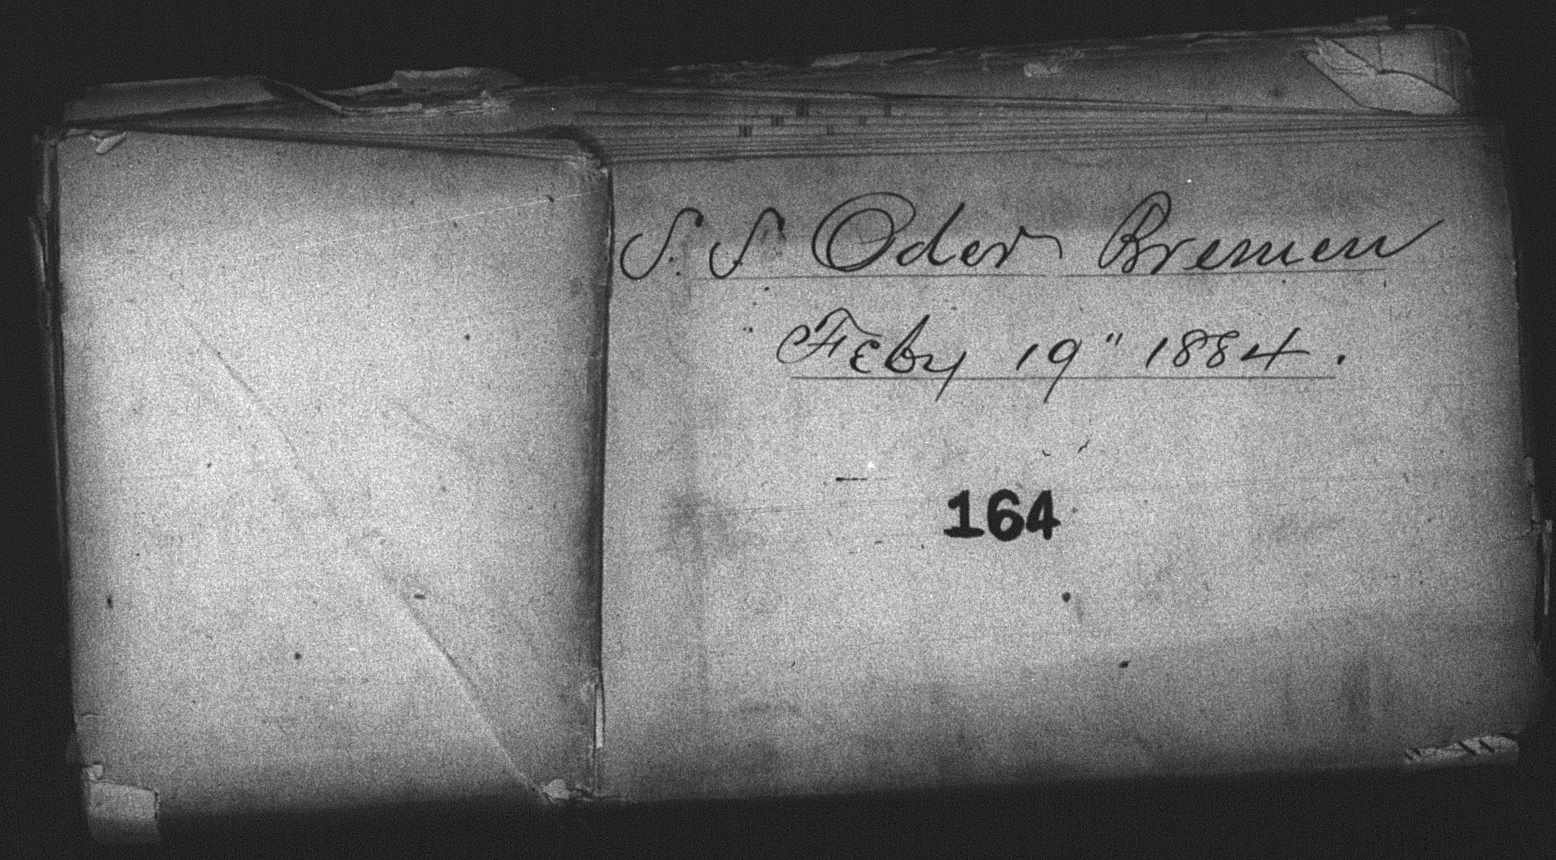 S. S Oder Bremen
Feby 19" 1884.
164